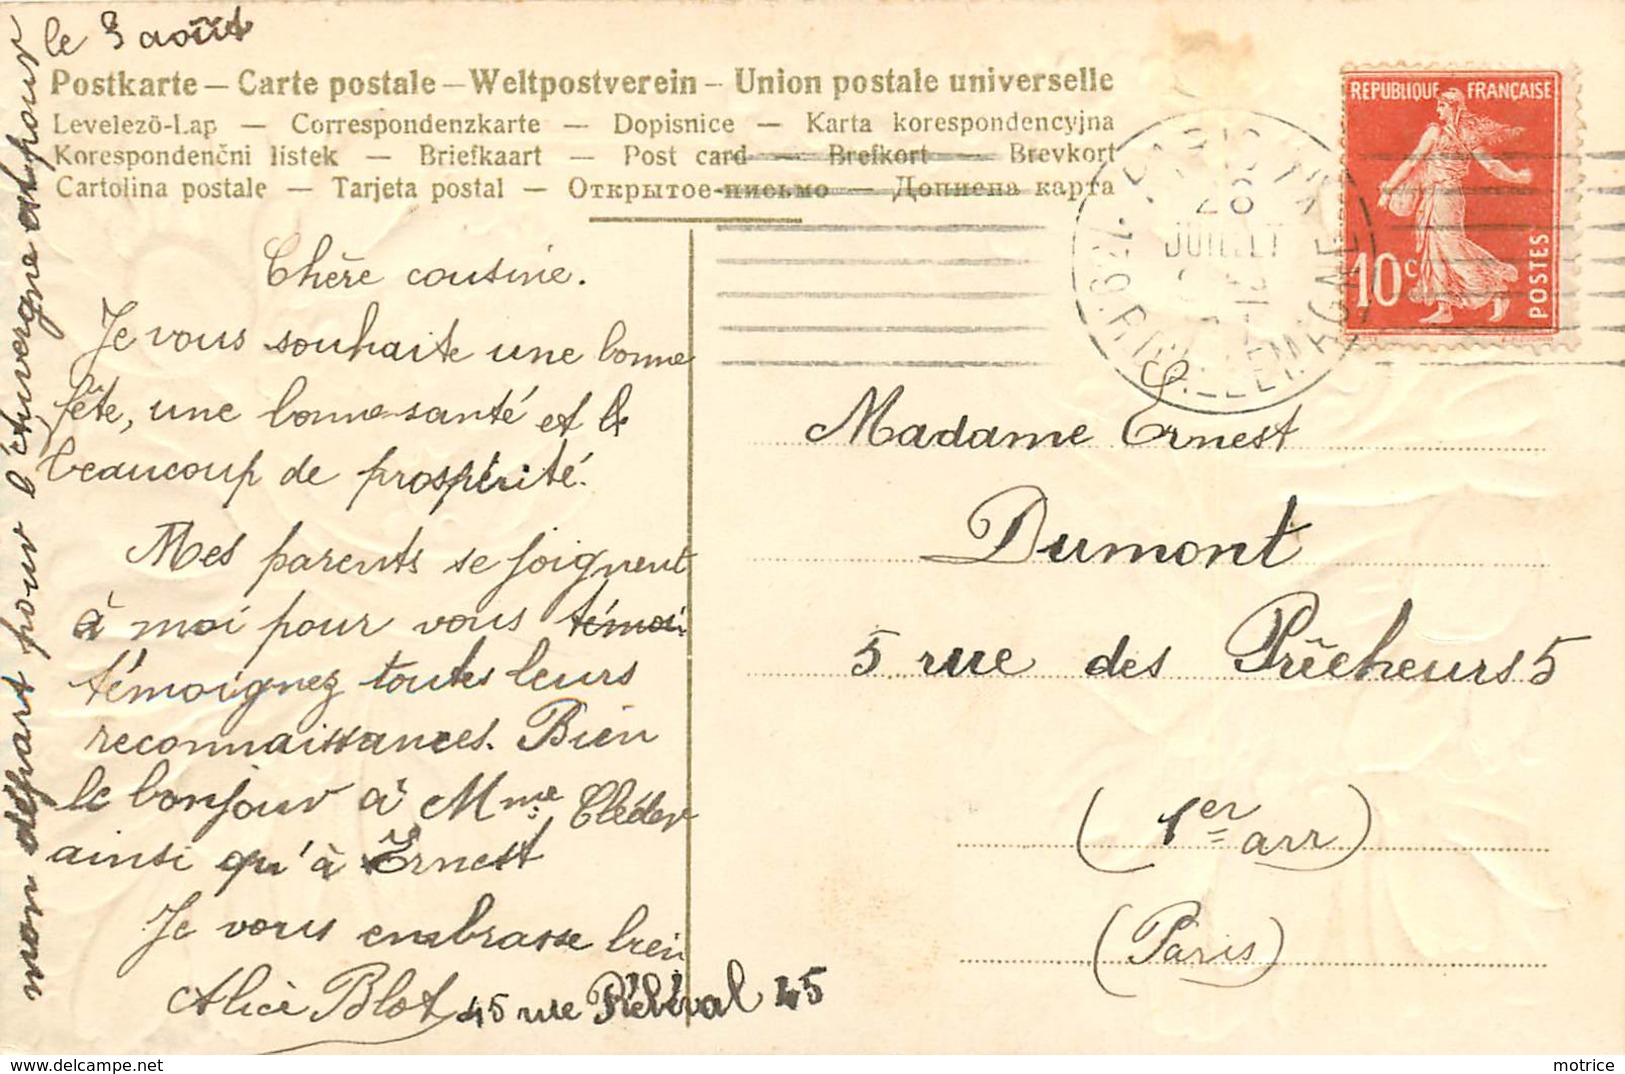 mon départ pour l'éuvergne est pour
le 3 août
Postkarte – Carte postale – Weltpostverein – Union postale universelle
Levelezö-Lap — Correspondenzkarte — Dopisnice — Karta korespondencyjna
Korespondenčni listek — Briefkaart — Post card — Brefkort — Brevkort
Cartolina postale — Tarjeta postal — Открытое письмо — Дописна карта
REPUBLIQUE FRANÇAISE
10c
POSTES
JUILLET
Chère cousine.
Je vous souhaite une bonne
fête, une bonne santé et
beaucoup de prospérité.
Mes parents se joignent
à moi pour vous témoi
témoignez toutes leurs
reconnaissances. Bien
le bonjour à Mme Cléder
ainsi qu'à Ernest
Je vous embrasse bien
Alice Blot 45 rue Rébéval 45
Madame Ernest
Dumont
5 rue des Prêcheurs 5
(1er arr)
(Paris)
motrice